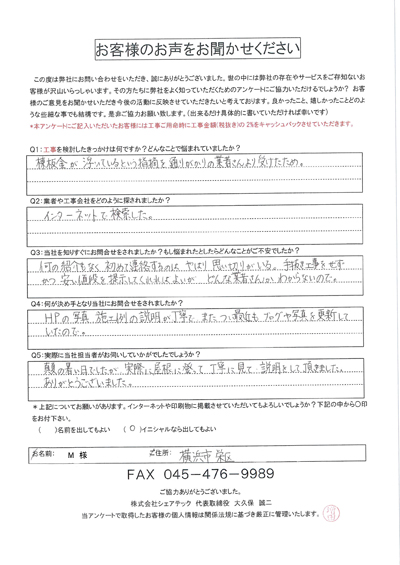 お客様のお声をお聞かせください
この度は弊社にお問い合わせをいただき、誠にありがとうございました。世の中には弊社の存在やサービスをご存知ないお
客様が沢山いらっしゃいます。その方たちに弊社をよく知っていただくためのアンケートにご協力いただけるでしょうか？ お客
様のご意見をお聞かせいただき今後の活動に反映させていただきたいと考えております。良かったこと、嬉しかったことどのよ
うな些細な事でも結構です。是非ご協力お願い致します。（出来るだけ具体的に書いていただければ幸いです）
*本アンケートにご記入いただいたお客様には工事ご用命時に工事金額(税抜き)の2%をキャッシュバックさせていただきます。
Q1:工事を検討したきっかけは何ですか？どんなことで悩まれていましたか？
棟板金が浮いているという指摘を通りがかりの業者さんより受けたため。
Q2:業者や工事会社をどのように探されましたか？
インターネットで検索した。
Q3:当社を知りすぐにお問合せをされましたか？もし悩まれたとしたらどんなことがご不安でしたか？
何の紹介もなく初めて連絡するのは やはり思い切りがいる。手抜き工事をせず
かつ 安い値段を提示してくれればよいが どんな業者さんかわからないので。
Q4:何が決め手となり当社にお問合せをされましたか？
HPの写真 施工例の説明が丁寧で また つい最近も ブログや写真を更新して
いたので。
Q5:実際に当社担当者がお伺いしていかがでしたでしょうか？
の暑い日でしたが 実際に屋根に登って 丁寧に見て 説明として頂きました。
ありがとうございました。
＊上記についてお願いがあります。インターネットや印刷物に掲載させていただいてもよろしいでしょうか？下記の中から○印
をお付け下さい。
（　　）名前を出してもよい　（ ○ ）イニシャルなら出してもよい
お名前: M 様 ご住所: 横浜市栄区
FAX 045-476-9989
ご協力ありがとうございました。
株式会社シェアテック 代表取締役 大久保 誠二
当アンケートで取得したお客様の個人情報は関係法規に基づき厳正に管理いたします。